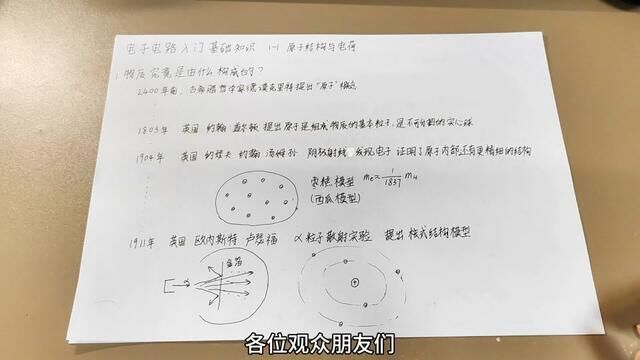 电子电路入门基础知识 1-1 原子结构与电荷
1.物质究竟是由什么构成的?
2400年前, 古希腊哲学家德谟克里特提出"原子"概念
1803年 英国 约翰 道尔顿 提出原子是组成物质的基本粒子,是不可分割的实心球
1904年 英国 约瑟夫 约翰 汤姆孙 阴极射线 发现电子 证明了原子内部还有更精细的结构
枣糕模型 me≈1/1837 mH
(西瓜模型)
1911年 英国 欧内斯特 卢瑟福 α粒子散射实验 提出核式结构模型
金箔
α
各位观众朋友们